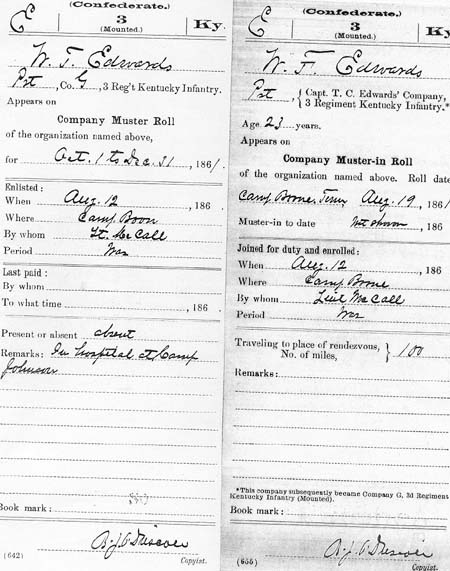 (Confederate.)
E 3 Ky.
(Mounted.)
W. T. Edwards
Pvt, Co. G, 3 Reg't Kentucky Infantry.
Appears on
Company Muster Roll
of the organization named above,
for Oct. 1 to Dec. 31, 1861.
Enlisted:
When Aug. 12, 186
Where Camp Boon
By whom Lt. McCall
Period War
Last paid:
By whom
To what time, 186
Present or absent absent
Remarks: In hospital at Camp
Johnson
Book mark:
(642) Copyist.
(Confederate.)
E 3 Ky.
(Mounted.)
W. T. Edwards
Pvt, { Capt. T. C. Edwards' Company,
3 Regiment Kentucky Infantry.*
Age 23 years.
Appears on
Company Muster-in Roll
of the organization named above. Roll dated
Camp Boone, Tenn, Aug. 19, 1861
Muster-in to date Not shown, 186
Joined for duty and enrolled:
When Aug. 12, 186
Where Camp Boone
By whom McCall
Period War
Traveling to place of rendezvous, }
No. of miles, } 100
Remarks:
*This company subsequently became Company G, 3d Regiment
Kentucky Infantry (Mounted).
Book mark:
(655) Copyist.